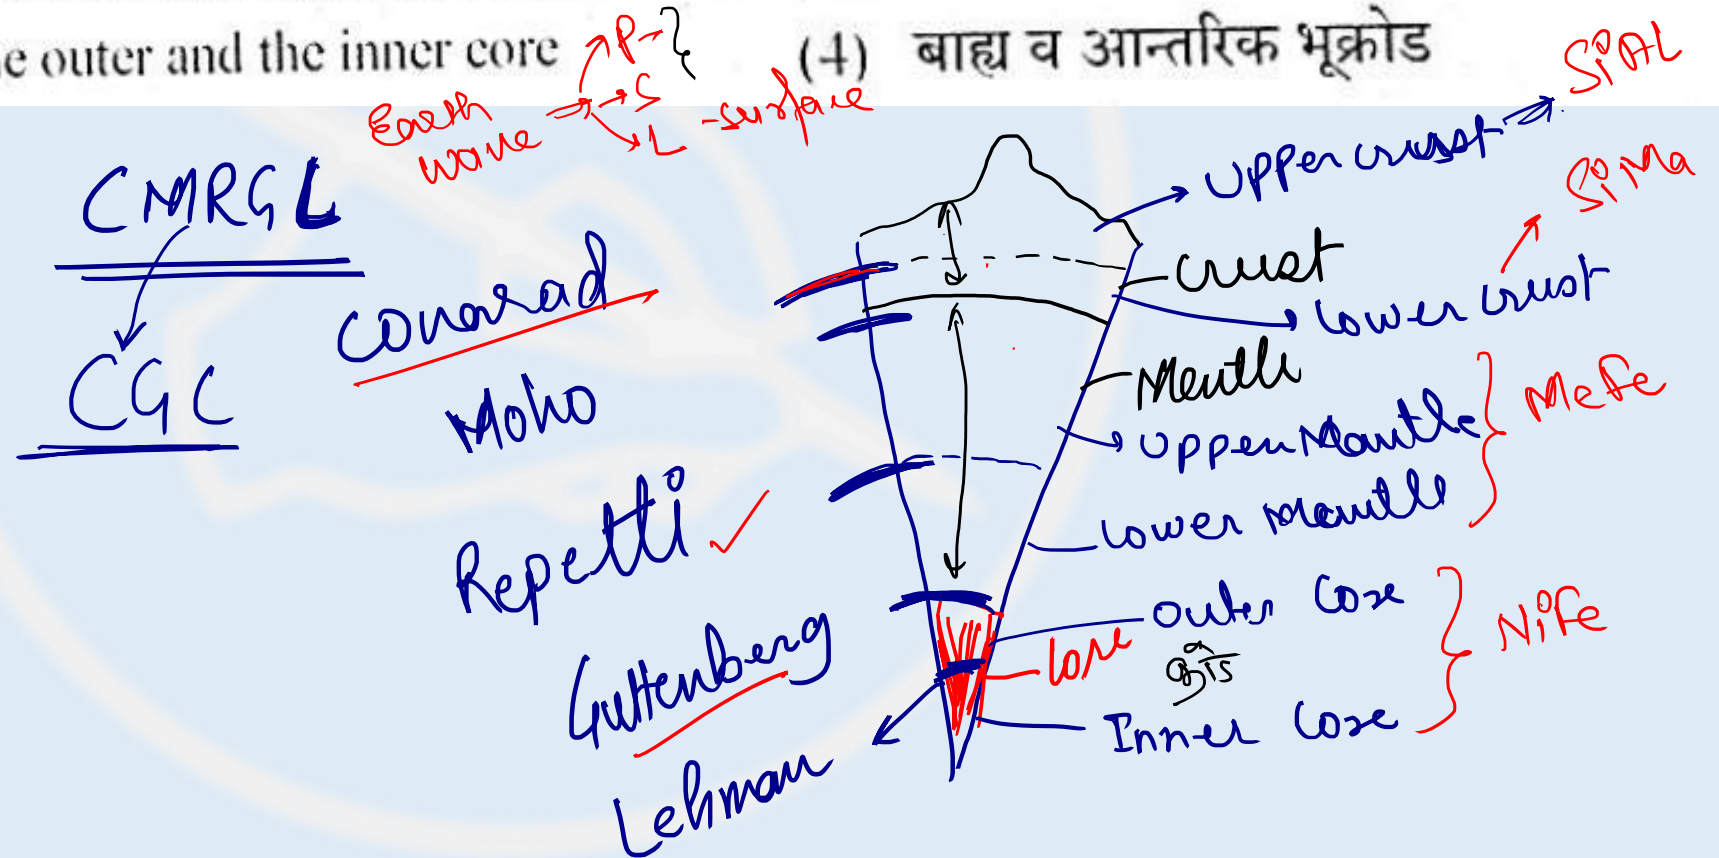 e outer and the inner core
(4) बाह्य व आन्तरिक भूक्रोड
Earth wave
P-
S
L -surface
CMRGL
CGC
Conorad
Moho
Repetti
Guttenberg
Lehman
Upper crust
SiAL
crust
SiMa
Lower crust
Mentle
Upper Mantle
Lower Mantle
MeFe
outer core
core
क्रोड
Inner core
Nife